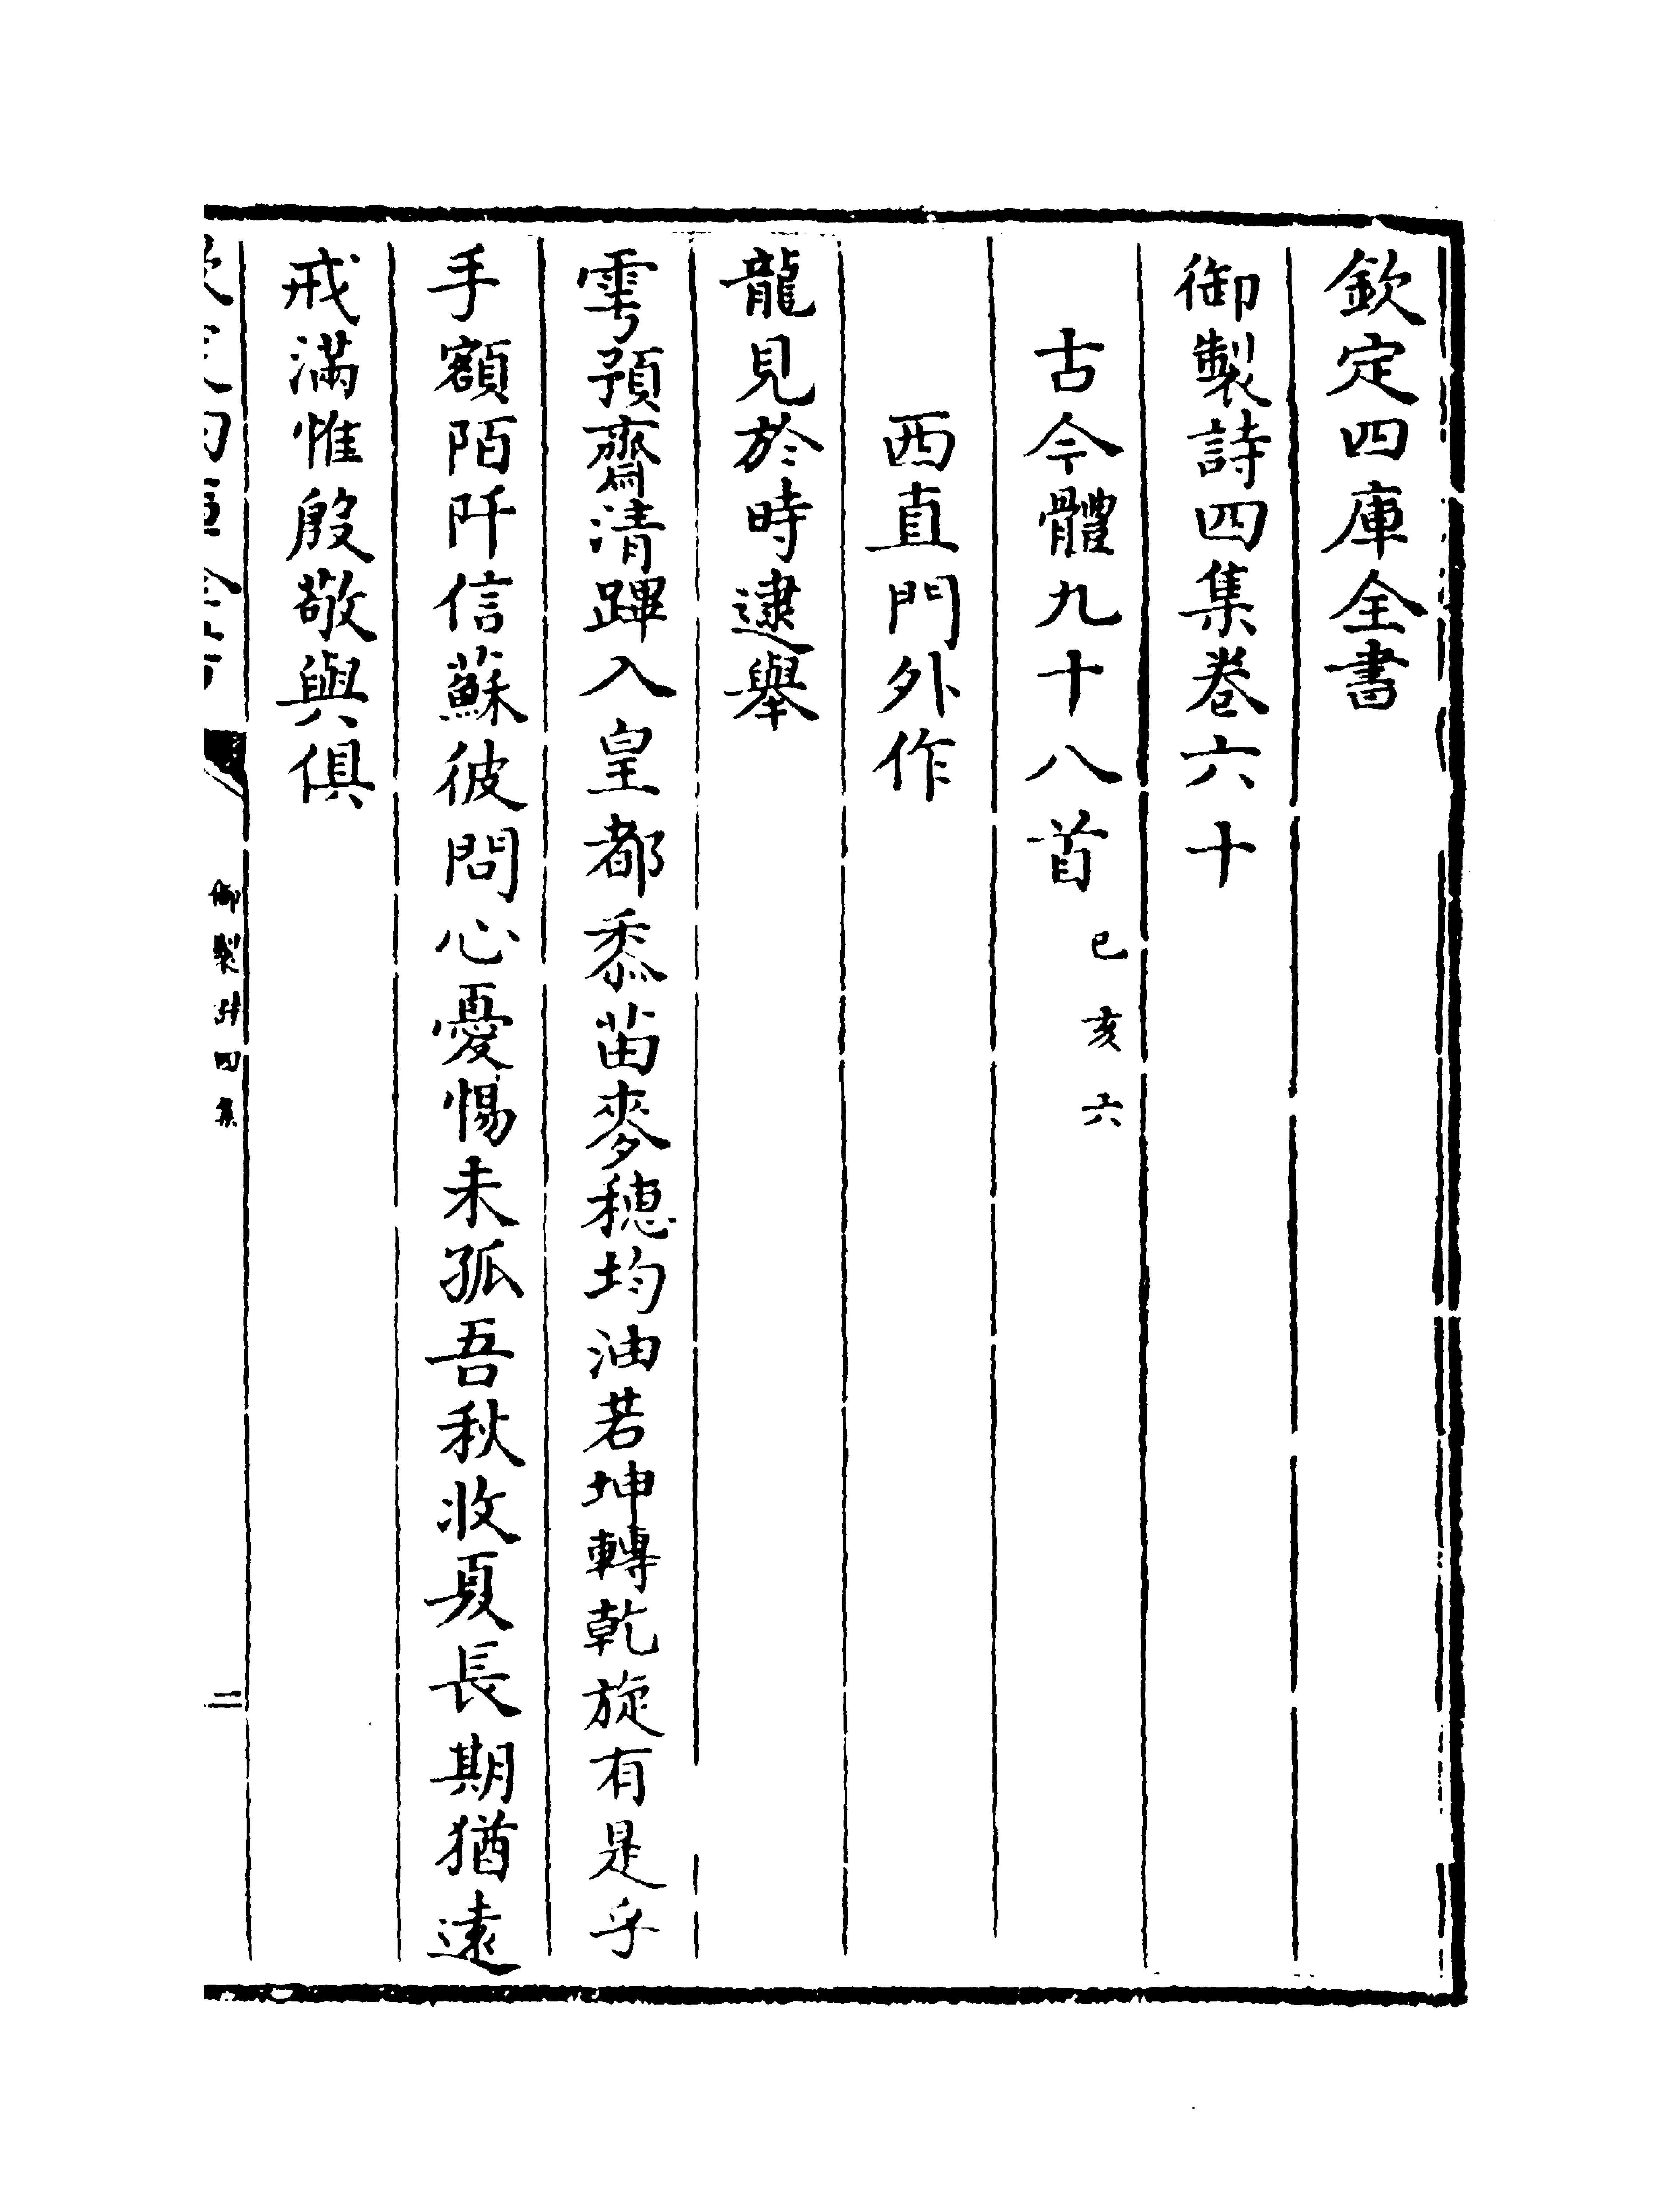 欽定四庫全書
御製詩四集卷六十
古今體九十八首 已亥六
西直門外作
龍見於時逮舉
雩預齋清蹕入皇都黍苗麥穗均油若坤轉乾旋有是乎
手額陌阡信蘇彼問心憂惕未孤吾秋收夏長期猶遠
戒滿惟殷敬與俱
欽定四庫全書 御製詩四集 二